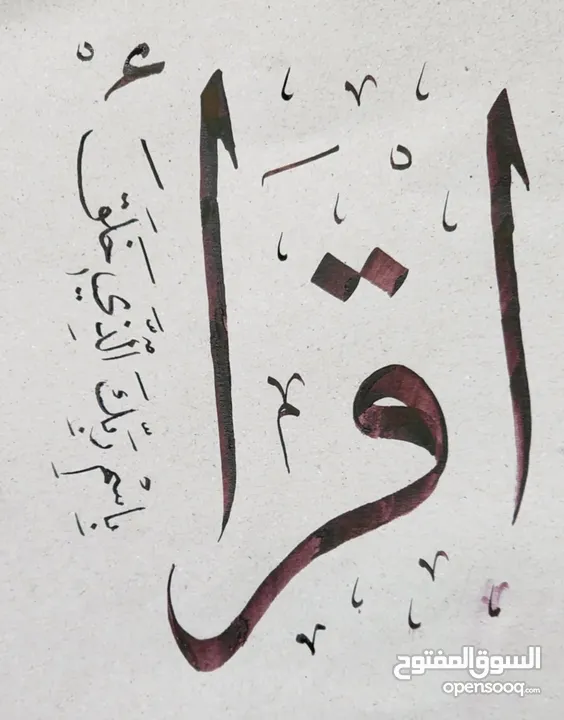 اقرأ
بِاسْمِ رَبِّكَ الَّذِي خَلَقَ
السوق المفتوح
opensooq.com